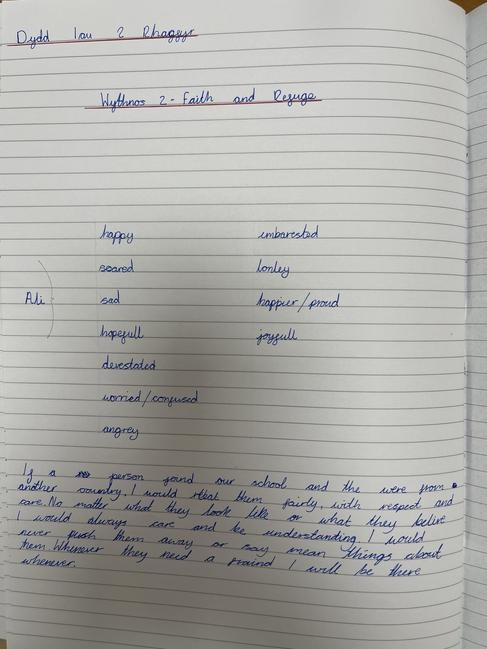 Dydd Iau 2 Rhagfyr
Wythnos 2 - Faith and Refuge
happy embarested
scared lonley
Ali sad happier/proud
hopefull joyfull
devestated
worried/confused
angrey
If a person joind our school and the were from
another country, I would treat them fairly, with respect and
care. No matter what they look like or what they belive
I would always care and be understanding I would
never push them away or say mean things about
them. Whenever they need a fraind I will be there
whenever.